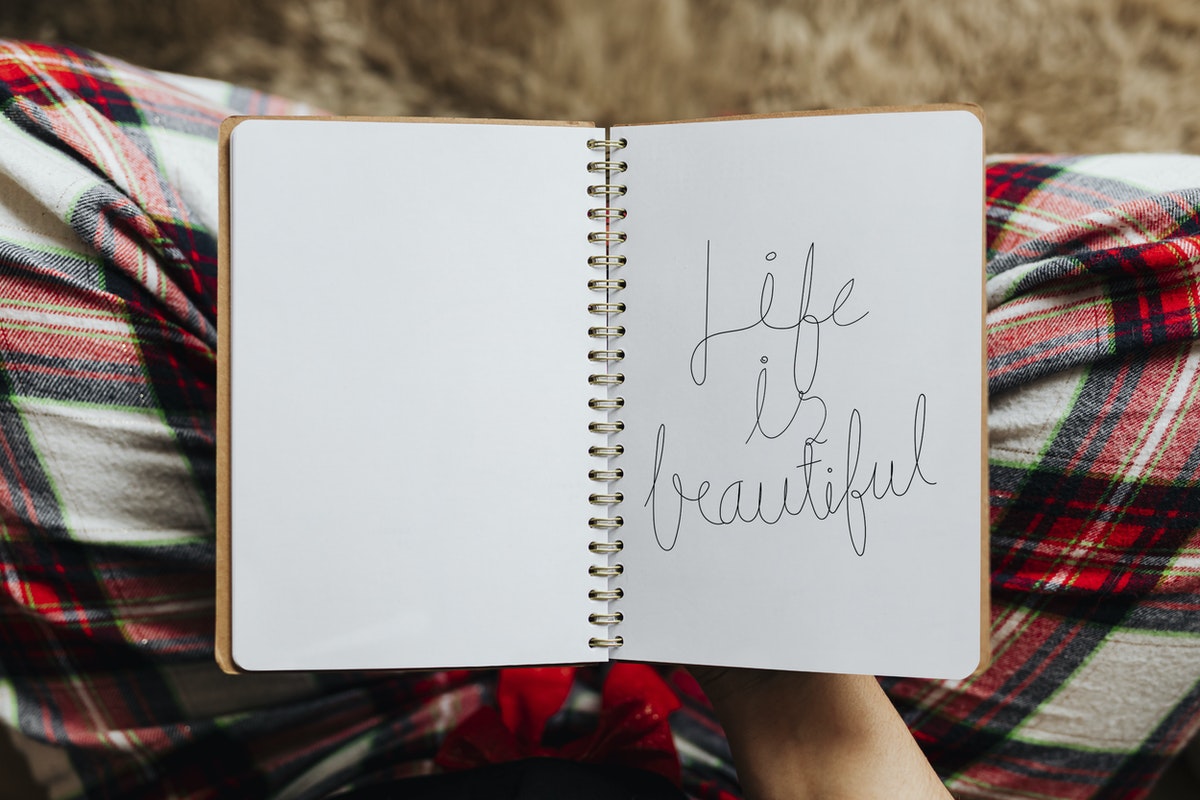 Life
is
beautiful